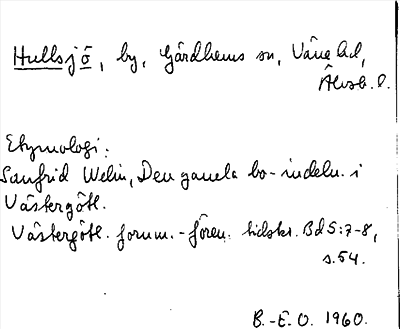 Hullsjö, by, Gärdhems sn, Väne hd,
Älvsb. l.
Etymologi:
Sanfrid Welin, Den gamla bo-indeln. i
Västergötl.
Västergötl. fornm.-fören. tidskr. Bd 5:7-8,
s. 54.
B.-E. O. 1960.